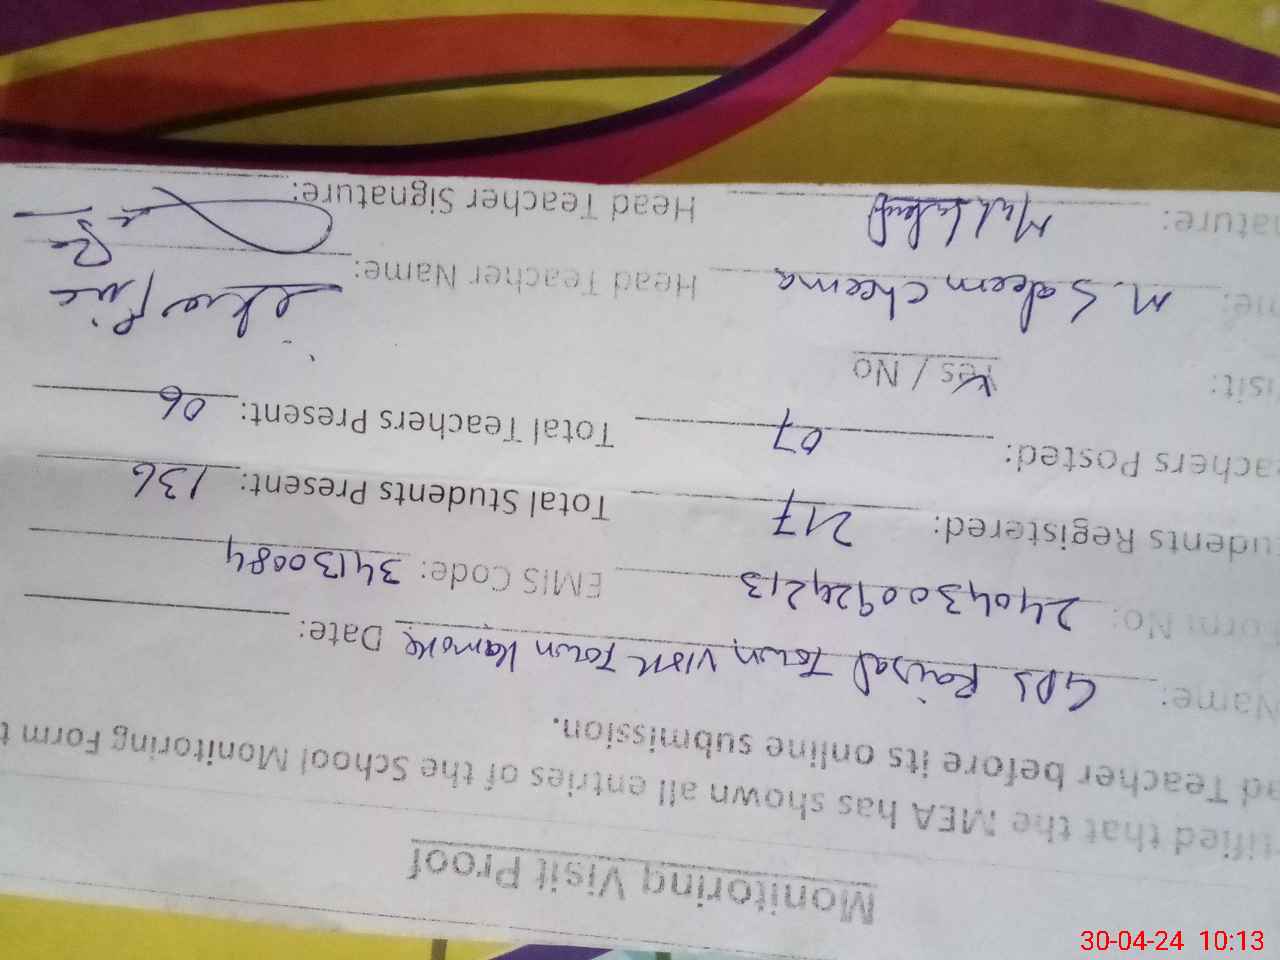 Monitoring Visit Proof
tified that the MEA has shown all entries of the School Monitoring Form t
ad Teacher before its online submission.
Name: GPS Faisal Town, Vism Town Kamoke Date:
orm No: 2404300924213 EMIS Code: 34130084
udents Registered: 217 Total Students Present: 136
achers Posted: 07 Total Teachers Present: 06
isit: Yes / No
me: M. Saleem Cheema Head Teacher Name:
nature: Head Teacher Signature:
30-04-24 10:13